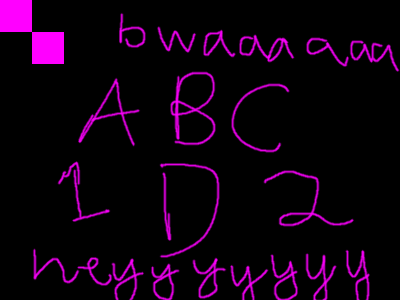 bwaaaaaa
A B C
1 D 2
heyyyyyyy